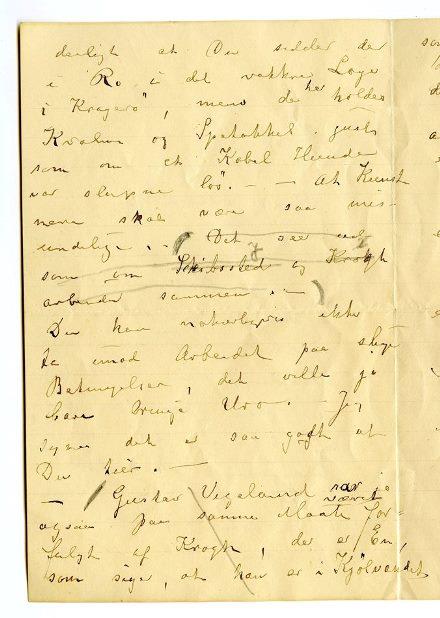 deiligt at Du sidder der
i Ro i det vakkre Loge
i Kragerø", mens der her holdes
Kvalm og Spetakkel. gusls
som om et Kobel Hunde
var slupne løs". — — At Kunst
nerne skal være saa mis-
undelige. . (Det ser ud
som om Skibssted og Krogh
arbeider sammen . . —)
Du kan naturligvis ikke
ta imod Arbeidet paa slige
Betingelser, det ville jo
bare bringe Uro. — Jeg
synes det er saa godt at
Du her. —
— Gustav Vigeland var jo
ogsaa paa samme Maate for-
fulgt af Krogh, der er En,
som siger, at han er i Kjølvandet